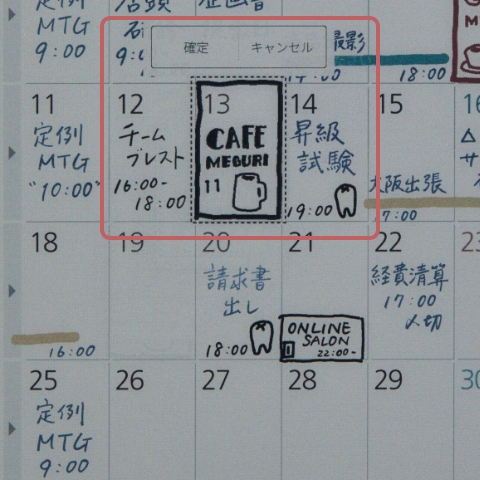 定例
MTG
9:00
店頭
企画書
確定
キャンセル
撮影
18:00
11
定例
MTG
"10:00"
12
チーム
ブレスト
16:00-
18:00
13
CAFE
MEGURI
11
14
昇級
試験
19:00
15
大阪出張
17:00
16
18
16:00
19
20
請求書
出し
18:00
21
ONLINE
SALON
22:00-
22
経費清算
17:00
〆切
23
25
定例
MTG
9:00
26
27
28
29
30